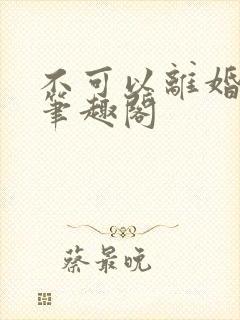 不可以離婚
筆趣閣
蔡最晚